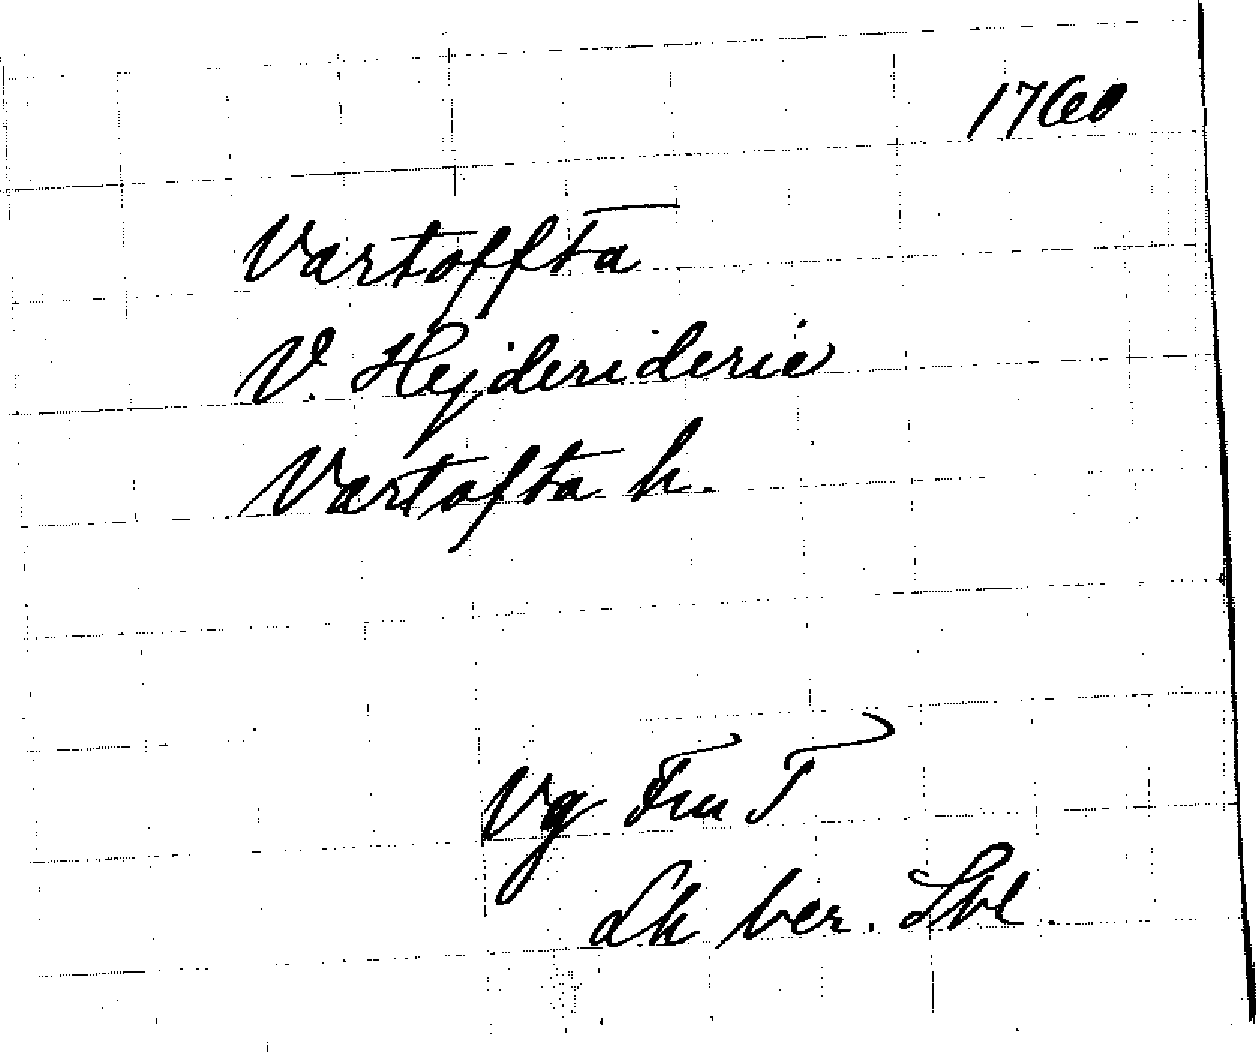 1760
Vartoffta
V. Hejderiderie
Vartofta h.
Vg Fru T
Lk ber. Skl.